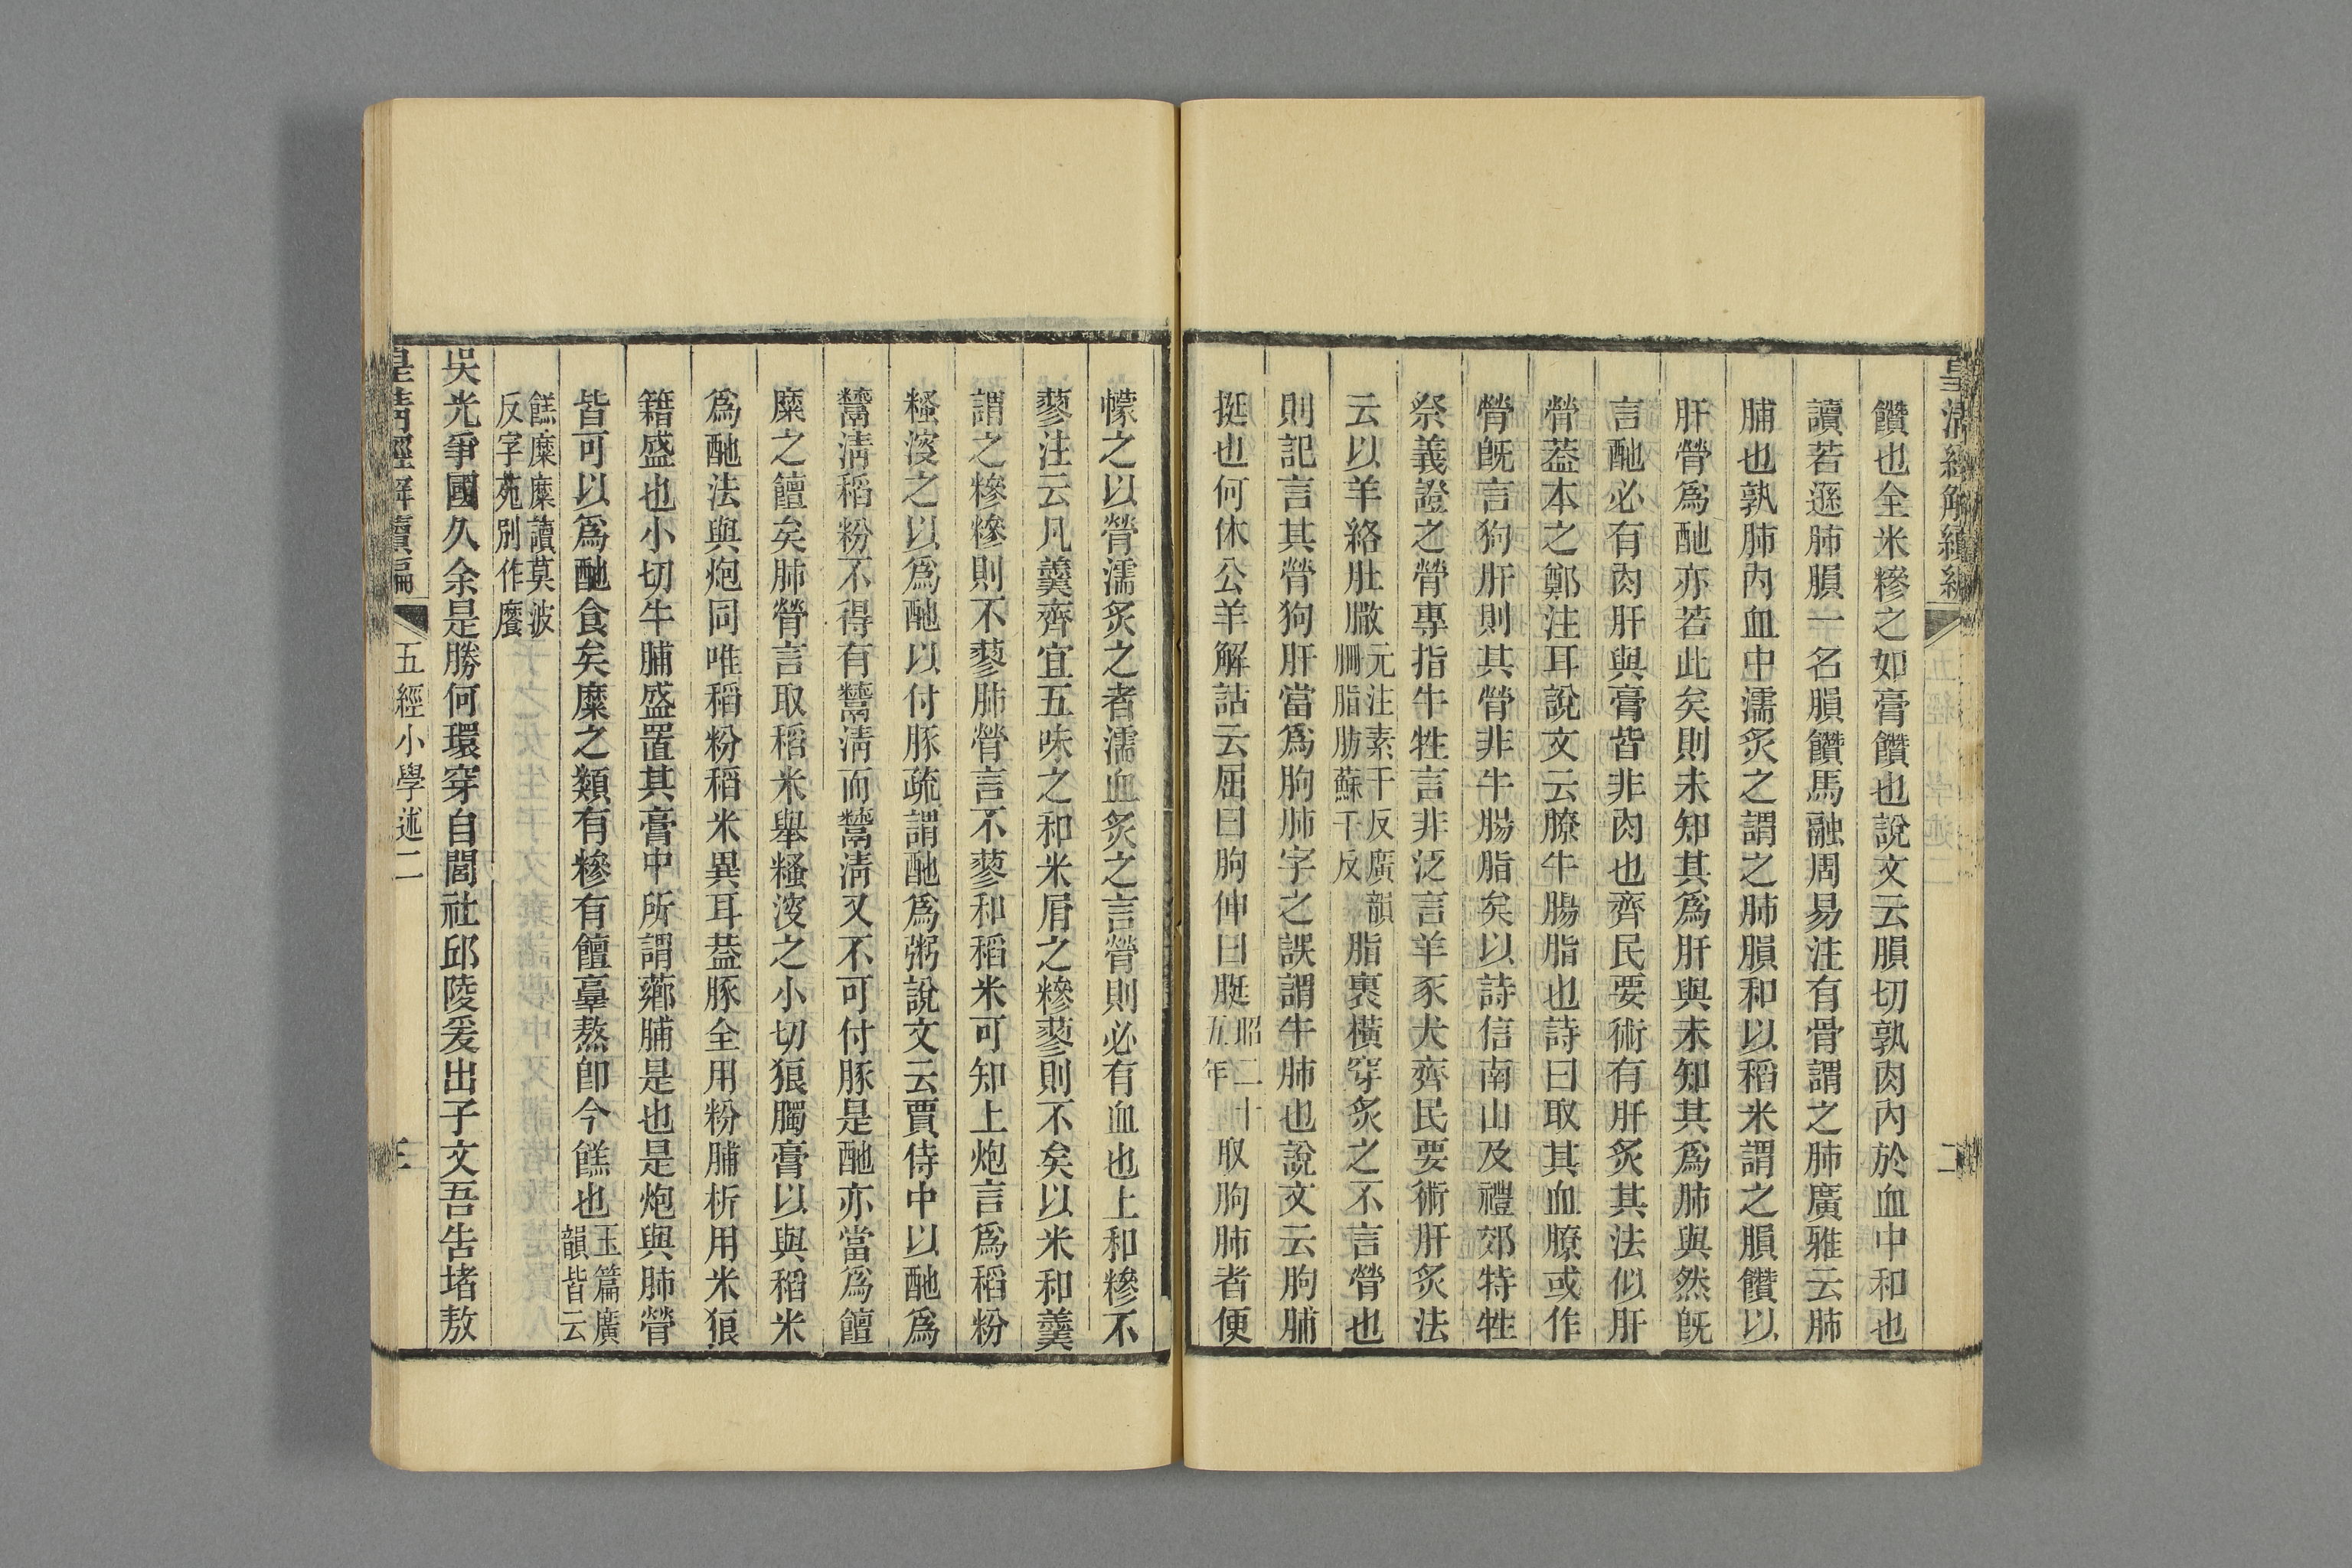 皇清經解續編
二
饡也全米糝之如膏饡也說文云膶切孰肉內於血中和也
讀若遜肺膶一名膶饡馬融周易注有骨謂之肺廣雅云肺
脯也孰肺內血中濡炙之謂之肺膶和以稻米謂之膶饡以
肝膋為酏亦若此矣則未知其為肝與未知其為肺與然旣
言酏必有肉肝與膏皆非肉也齊民要術有肝炙其法似肝
膋葢本之鄭注耳說文云膫牛腸脂也詩曰取其血膫或作
膋旣言狗肝則其膋非牛腸脂矣以詩信南山及禮郊特牲
祭義證之膋專指牛牲言非泛言羊豕犬齊民要術肝炙法
云以羊絡肚䐧元注素干反廣韻
䐧脂肪蘇干反脂裹橫穿炙之不言膋也
則記言其膋狗肝當為朐肺字之誤謂牛肺也說文云朐脯
挺也何休公羊解詁云屈曰朐伸曰脡昭二十
五年取朐肺者便
幪之以膋濡炙之者濡血炙之言膋則必有血也上和糝不
蓼注云凡羹齊宜五味之和米屑之糝蓼則不矣以米和羹
謂之糝糝則不蓼肺膋言不蓼和稻米可知上炮言為稻粉
糔溲之以為酏以付豚疏謂酏為粥說文云賈侍中以酏為
鬻清稻粉不得有鬻清而鬻清又不可付豚是酏亦當為饘
糜之饘矣肺膋言取稻米舉糔溲之小切狼臅膏以與稻米
為酏法與炮同唯稻粉稻米異耳葢豚全用粉脯析用米狼
籍盛也小切牛脯盛置其膏中所謂薌脯是也是炮與肺膋
皆可以為酏食矣糜之類有糝有饘臺熬卽今餻也玉篇廣
韻皆云
餻糜糜讀莫波
反字苑別作䭩
吳光爭國久余是勝何環穿自閭社邱陵爰出子文吾告堵敖
皇清經解續編
五經小學述二
三